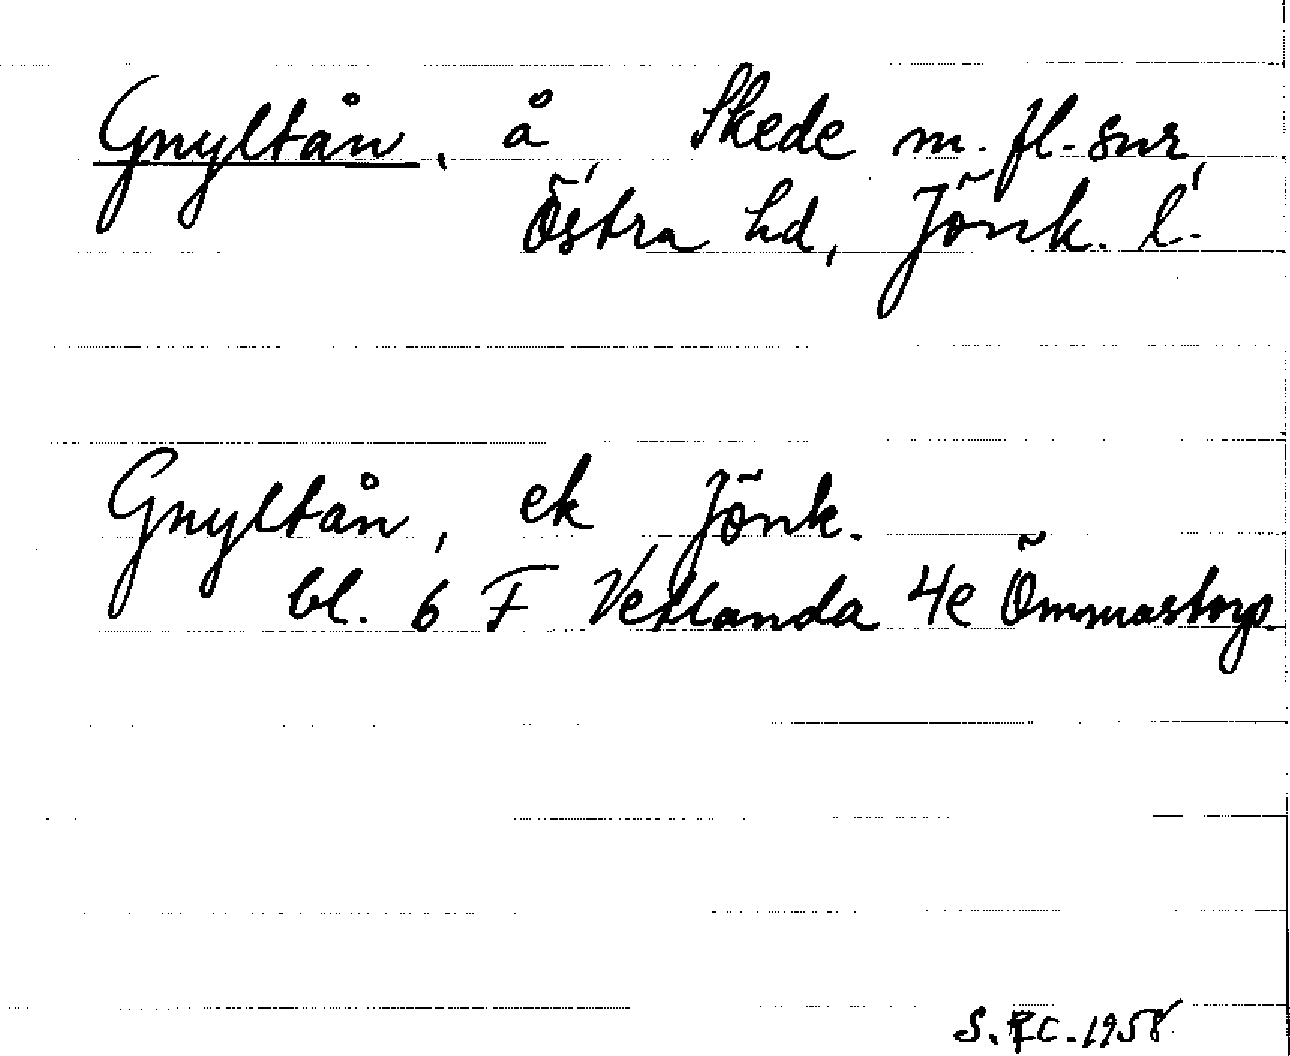 Gnyltån, å, Skede m. fl. snr,
Östra hd, Jönk. l.
Gnyltån, ek Jönk.
bl. 6 F Vetlanda 4e Ömmastorp.
1958